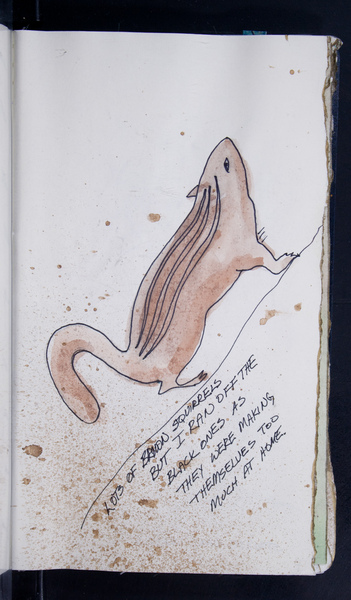 LOTS OF BROWN SQUIRRELS
BUT I RAN OFF THE
BLACK ONES AS
THEY WERE MAKING
THEMSELVES TOO
MUCH AT HOME